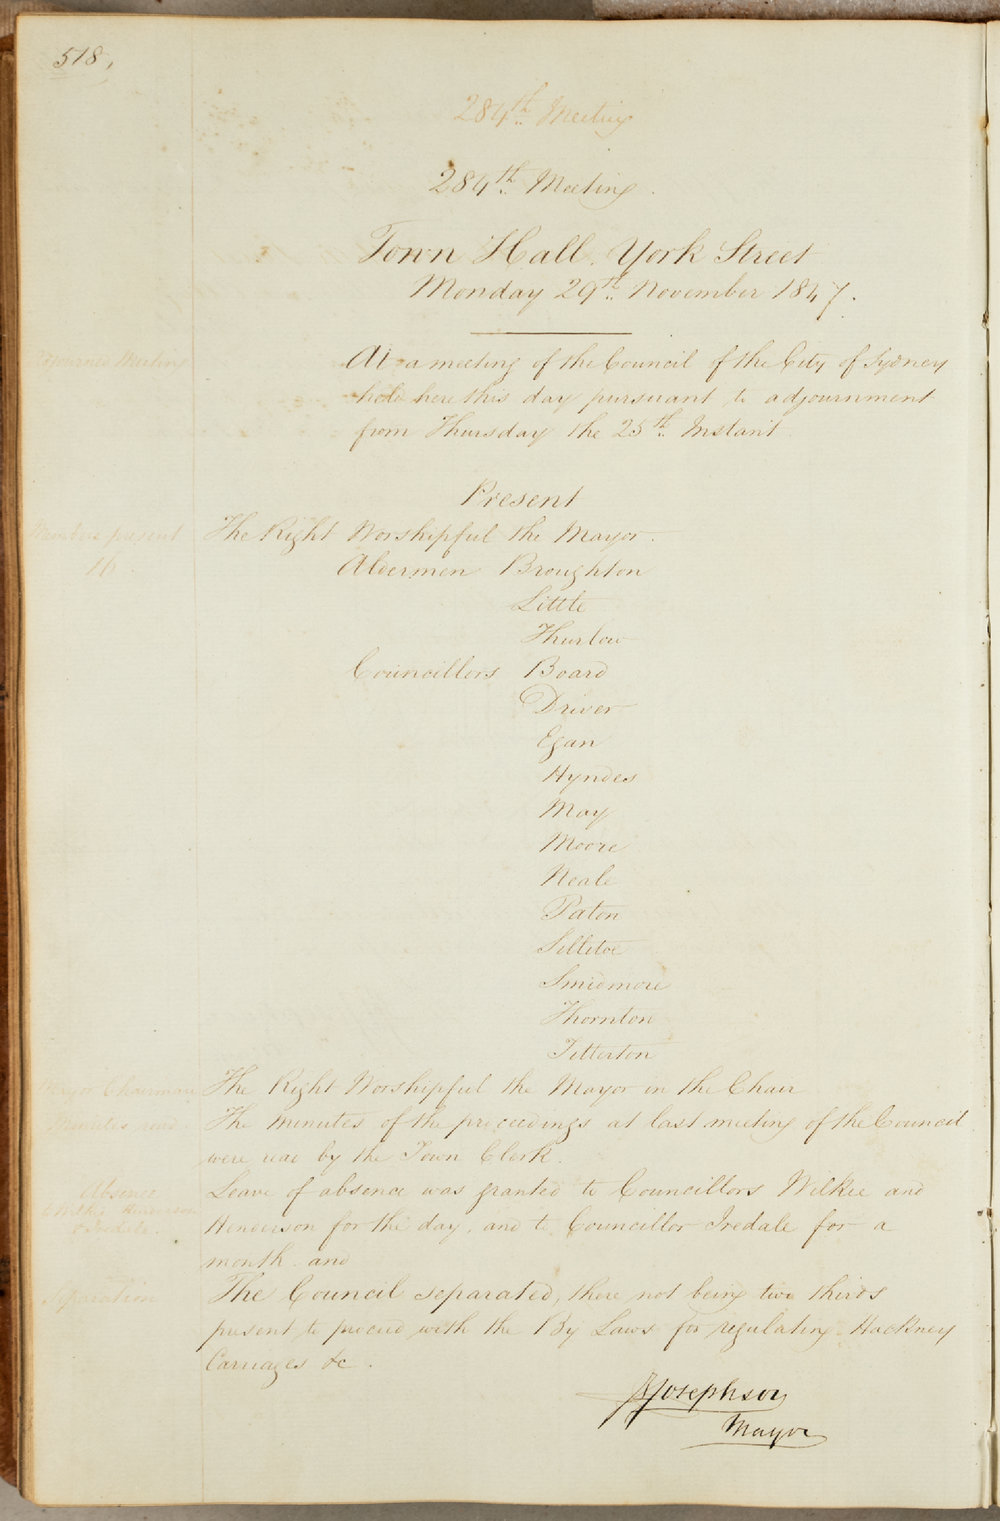 518,
284th Meeting
284th Meeting.
Town Hall. York Street
Monday 29th November 1847.
Adjourned Meeting
At a meeting of the Council of the City of Sydney
held here this day pursuant to adjournment
from Thursday the 25th Instant.
Present
Members present
16.
The Right Worshipful the Mayor.
Aldermen Broughton
Little
Thurlow
Councillors Board
Driver
Egan
Hyndes
May
Moore
Neale
Paton
Sillitoe
Smidmore
Thornton
Titterton
Mayor Chairman
The Right Worshipful the Mayor in the Chair
Minutes read
The Minutes of the proceedings at last meeting of the Council
were read by the Town Clerk.
Absence
Wilkie Henderson
& Iredale.
Leave of absence was granted to Councillors Wilkie and
Henderson for the day, and to Councillor Iredale for a
month. and
Separation
The Council separated, there not being two thirds
present to proceed with the By Laws for regulating Hackney
Carriages &c.
Josephson
Mayor